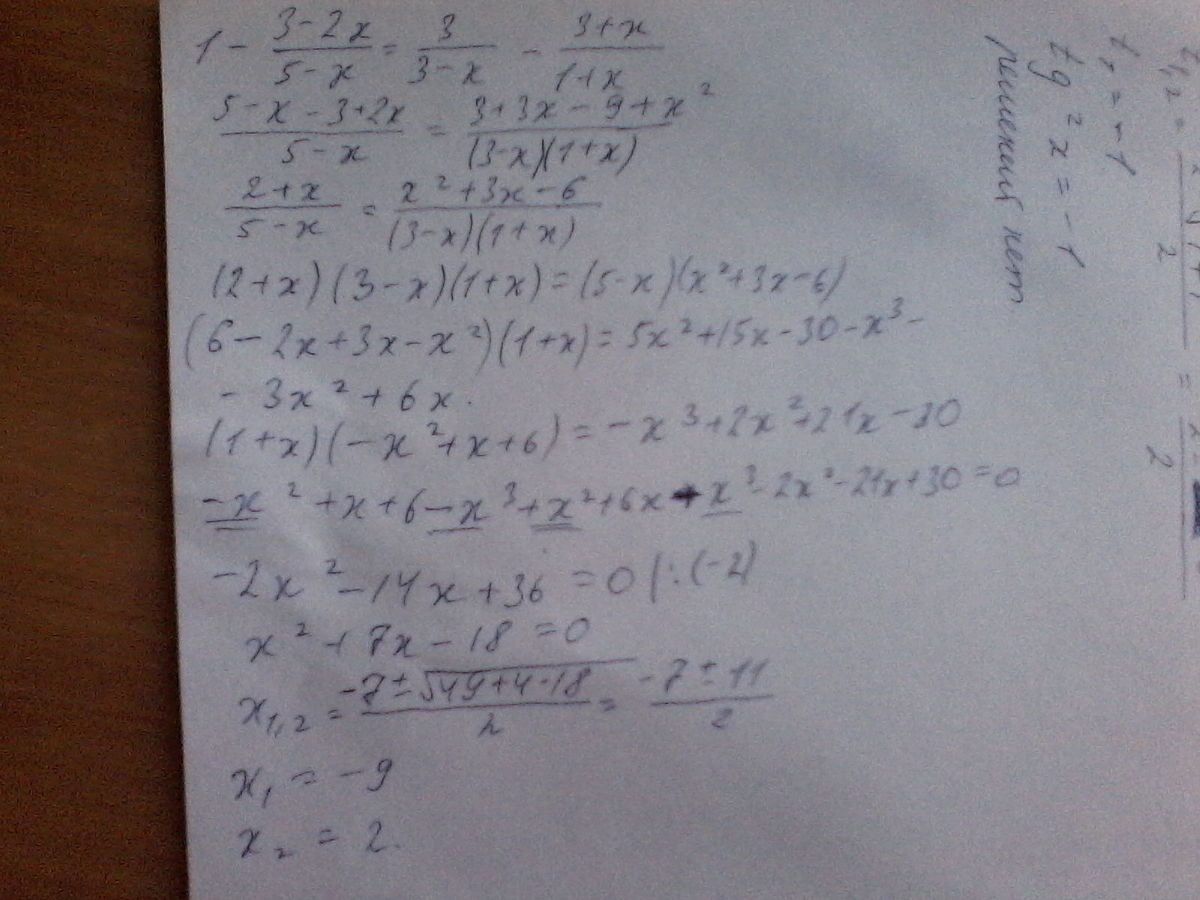 1 - (3-2x)/(5-x) = 3/(3-x) - (3+x)/(1+x)
(5-x-3+2x)/(5-x) = (3+3x-9+x²)/((3-x)(1+x))
(2+x)/(5-x) = (x²+3x-6)/((3-x)(1+x))
(2+x)(3-x)(1+x)=(5-x)(x²+3x-6)
(6-2x+3x-x²)(1+x)=5x²+15x-30-x³-
-3x²+6x.
(1+x)(-x²+x+6)=-x³+2x²+21x-30
-x²+x+6-x³+x²+6x+x³-2x²-21x+30=0
-2x²-14x+36=0 |:(-2)
x²+7x-18=0
x₁,₂ = (-7±√(49+4·18))/2 = (-7±11)/2
x₁ = -9
x₂ = 2.
t₁ = -1
tg²x = -1
решений нет.